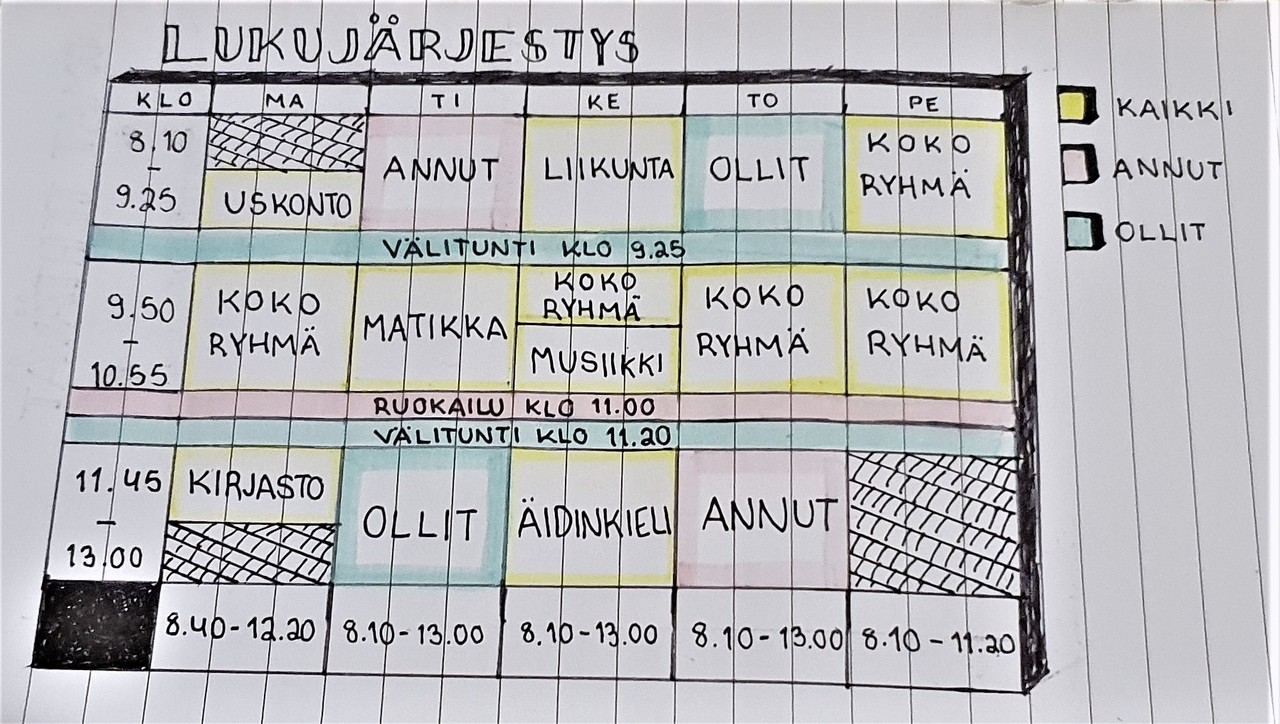 LUKUJÄRJESTYS
KLO MA TI KE TO PE
8.10 - 9.25
USKONTO
ANNUT
LIIKUNTA
OLLIT
KOKO
RYHMÄ
VÄLITUNTI KLO 9.25
9.50 - 10.55
KOKO
RYHMÄ
MATIKKA
KOKO
RYHMÄ
MUSIIKKI
KOKO
RYHMÄ
KOKO
RYHMÄ
RUOKAILU KLO 11.00
VÄLITUNTI KLO 11.20
11.45 - 13.00
KIRJASTO
OLLIT
ÄIDINKIELI
ANNUT
8.40-12.20 8.10-13.00 8.10-13.00 8.10-13.00 8.10-11.20
KAIKKI
ANNUT
OLLIT